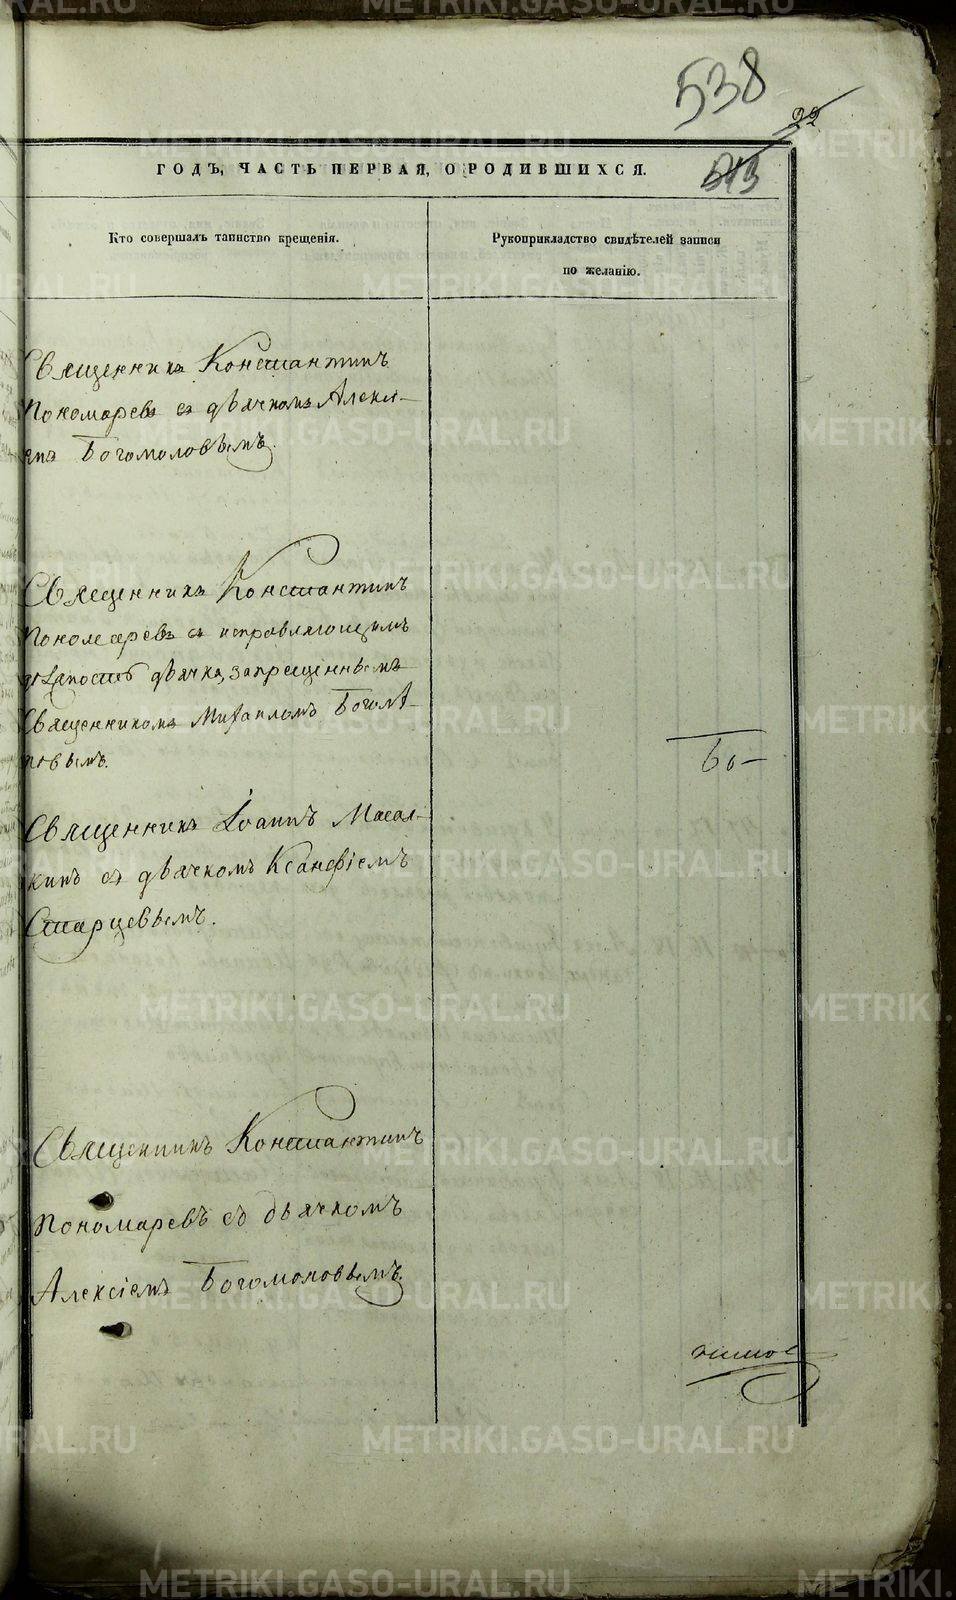 538
22
513
ГОДЪ, ЧАСТЬ ПЕРВАЯ, О РОДИВШИХСЯ.
Кто совершалъ таинство крещенія.
Рукоприкладство свидѣтелей записи
по желанію.
Священникъ Константинъ
Пономаревъ съ дьячкомъ Алексі-
емъ Богомоловымъ.
Священникъ Константинъ
Пономаревъ съ исправляющимъ
должность дьячка, запрещеннымъ
Священникомъ Михаиломъ Богомо-
ловымъ.
Бо-
Священникъ Іоаннъ Масал-
кинъ съ дьячкомъ Ксанфіемъ
Старцевымъ.
Священникъ Константинъ
Пономаревъ съ дьячкомъ
Алексіемъ Богомоловымъ.
METRIKI.GASO-URAL.RU